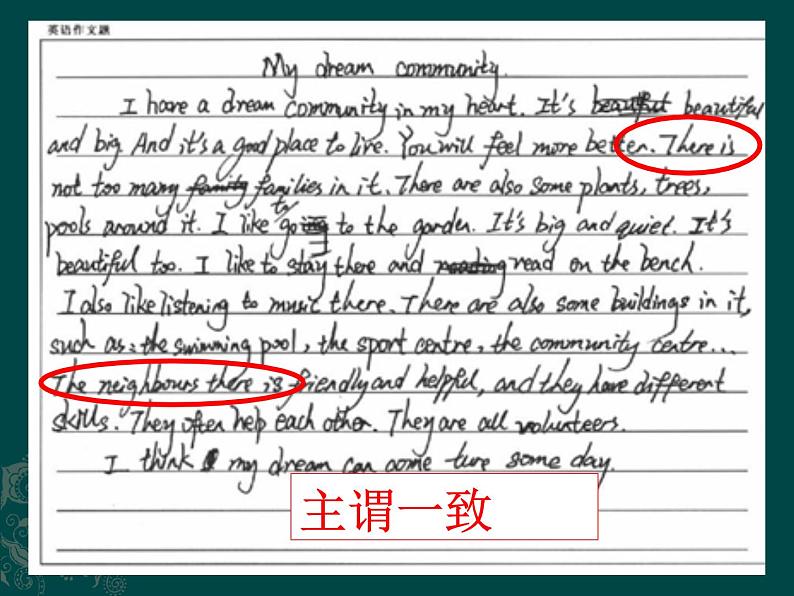 英语作文题
My dream community.
I have a dream community in my heart. It's beautiful
and big And it's a good place to live. You will feel more better. There is
not too many families in it. There are also some plants, trees,
pools around it. I like to go to the garden. It's big and quiet. It's
beautiful too. I like to stay there and read on the bench.
I also like listening to music there. There are also some buildings in it,
such as: the swimming pool, the sport centre, the community centre...
The neighbours there is friendly and helpful, and they have different
skills. They often help each other. They are all volunteers.
I think my dream can come ture some day.
主谓一致